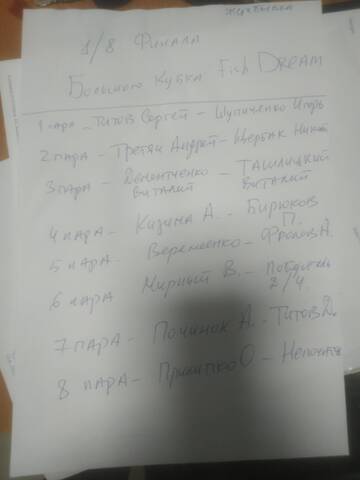 жеребьевка
1/8 Финала
Большого Кубка Fish Dream
1 пара - Титов Сергей - Шупиченко Игорь
2 пара - Третяк Андрей - Щербак Никит
3 пара - Дементченко Виталий Ташлицкий Виталий
4 пара - Казина А. - Бирюков П.
5 пара Веремеенко - Фролов А.
6 пара Мирный В. - 2/4
7 пара - Починок А - Титов Д.
8 пара - Прилипко О -